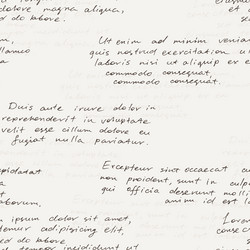 dolore magna aliqua,
ed do labore.
et d
Ut enim ad minim veniam
quis nostrud exercitation ul
laboris nisi ut aliquip ex e
commodo consequat,
commodo consequat.
llamco
Duis aute irure dolor in
reprehenderit in voluptate
velit esse cillum dolore eu
fugiat nulla pariatur.
Excepteur sint occaecat cu
non proident, sunt in culpa
qui officia deserunt molli
anim id est la
pidatat
aborum.
ipsum dolor sit amet,
adipiscing elit,
ed do labore.
tempor incididunt ut
Lorem
conse